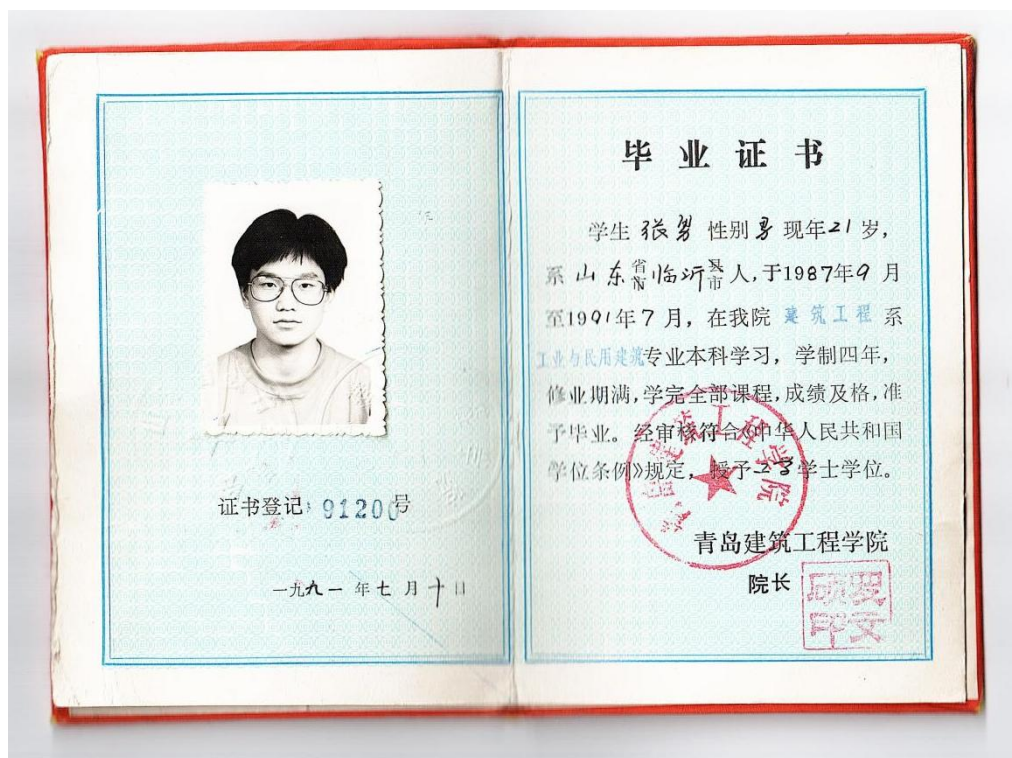 证书登记 91200号
一九九一年七月十日
毕业证书
学生 张 性别 男 现年21岁,
系山东省市临沂县市人,于1987年9月
至1991年7月,在我院 建筑工程 系
工业与民用建筑专业本科学习,学制四年,
修业期满,学完全部课程,成绩及格,准
予毕业。经审核符合《中华人民共和国
学位条例》规定,授予工学学士学位。
青岛建筑工程学院
院长
青岛建筑工程学院